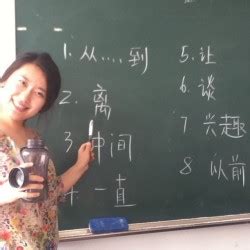 1. 从....到
2. 离
3 中间
4 一直
5. 让
6. 谈
7 兴趣
8 以前